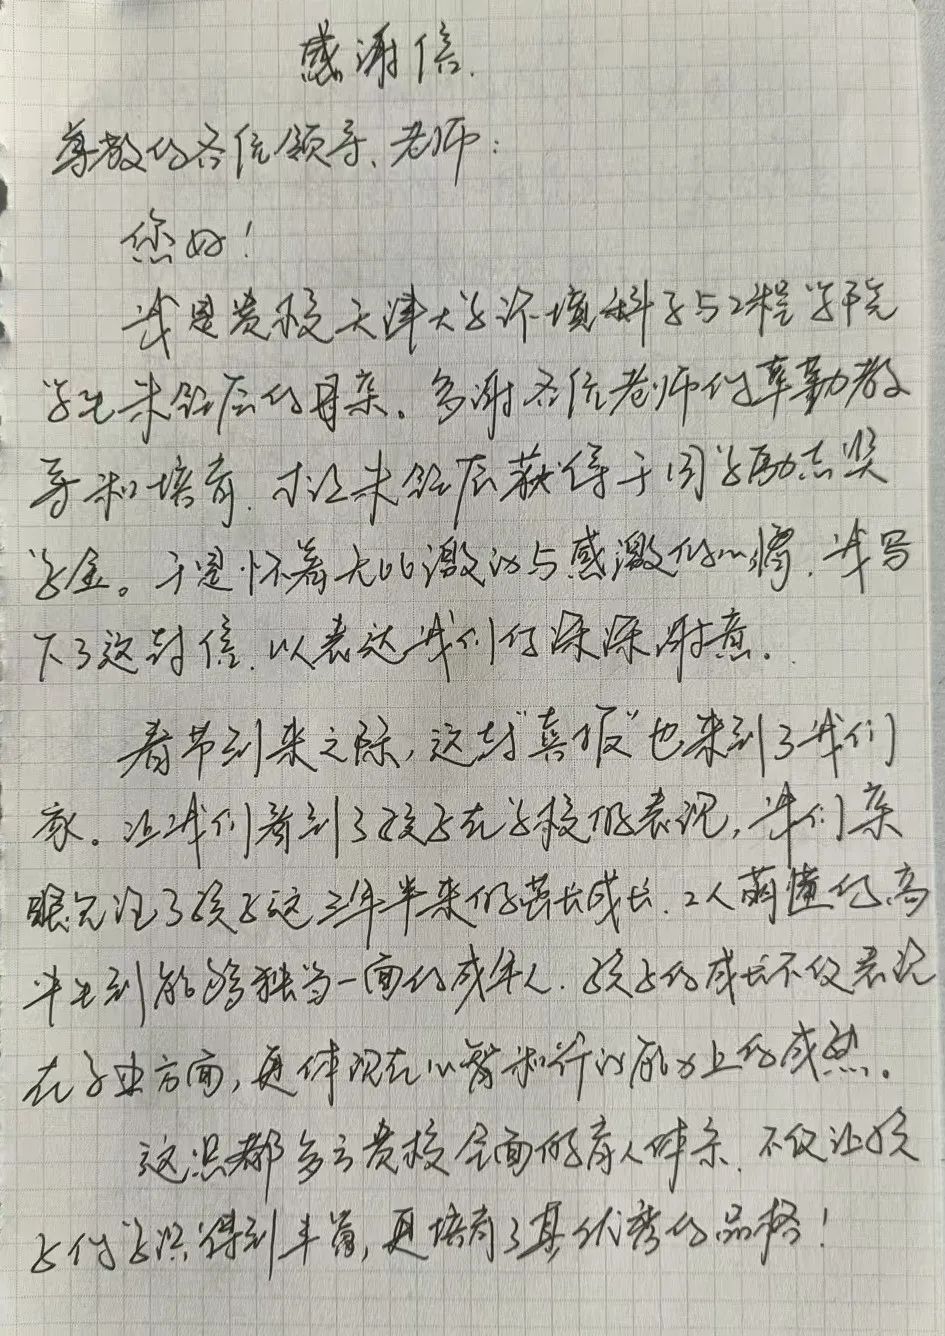 感谢信.
尊敬的各位领导、老师:
您好!
我是贵校天津大学环境科学与工程学院
学生朱 辰的母亲。多谢各位老师的辛勤教
导和培育,才让朱 辰获得了国学励志奖
学金。于是怀着无比激动与感激的心情,我写
下了这封信,以表达我们的深深谢意。
春节到来之际,这封“喜报”也来到了我们
家。让我们看到了孩子在学校的表现,我们亲
眼见证了孩子这三年半来的茁长成长.从懵懂的高
中生到能够独当一面的成年人.孩子的成长不仅表现
在学业方面,更体现在心智和行为能力上的成熟。
这些都多亏贵校全面的育人体系.不仅让孩
子的学识得到丰富,更培育了其优秀的品格!